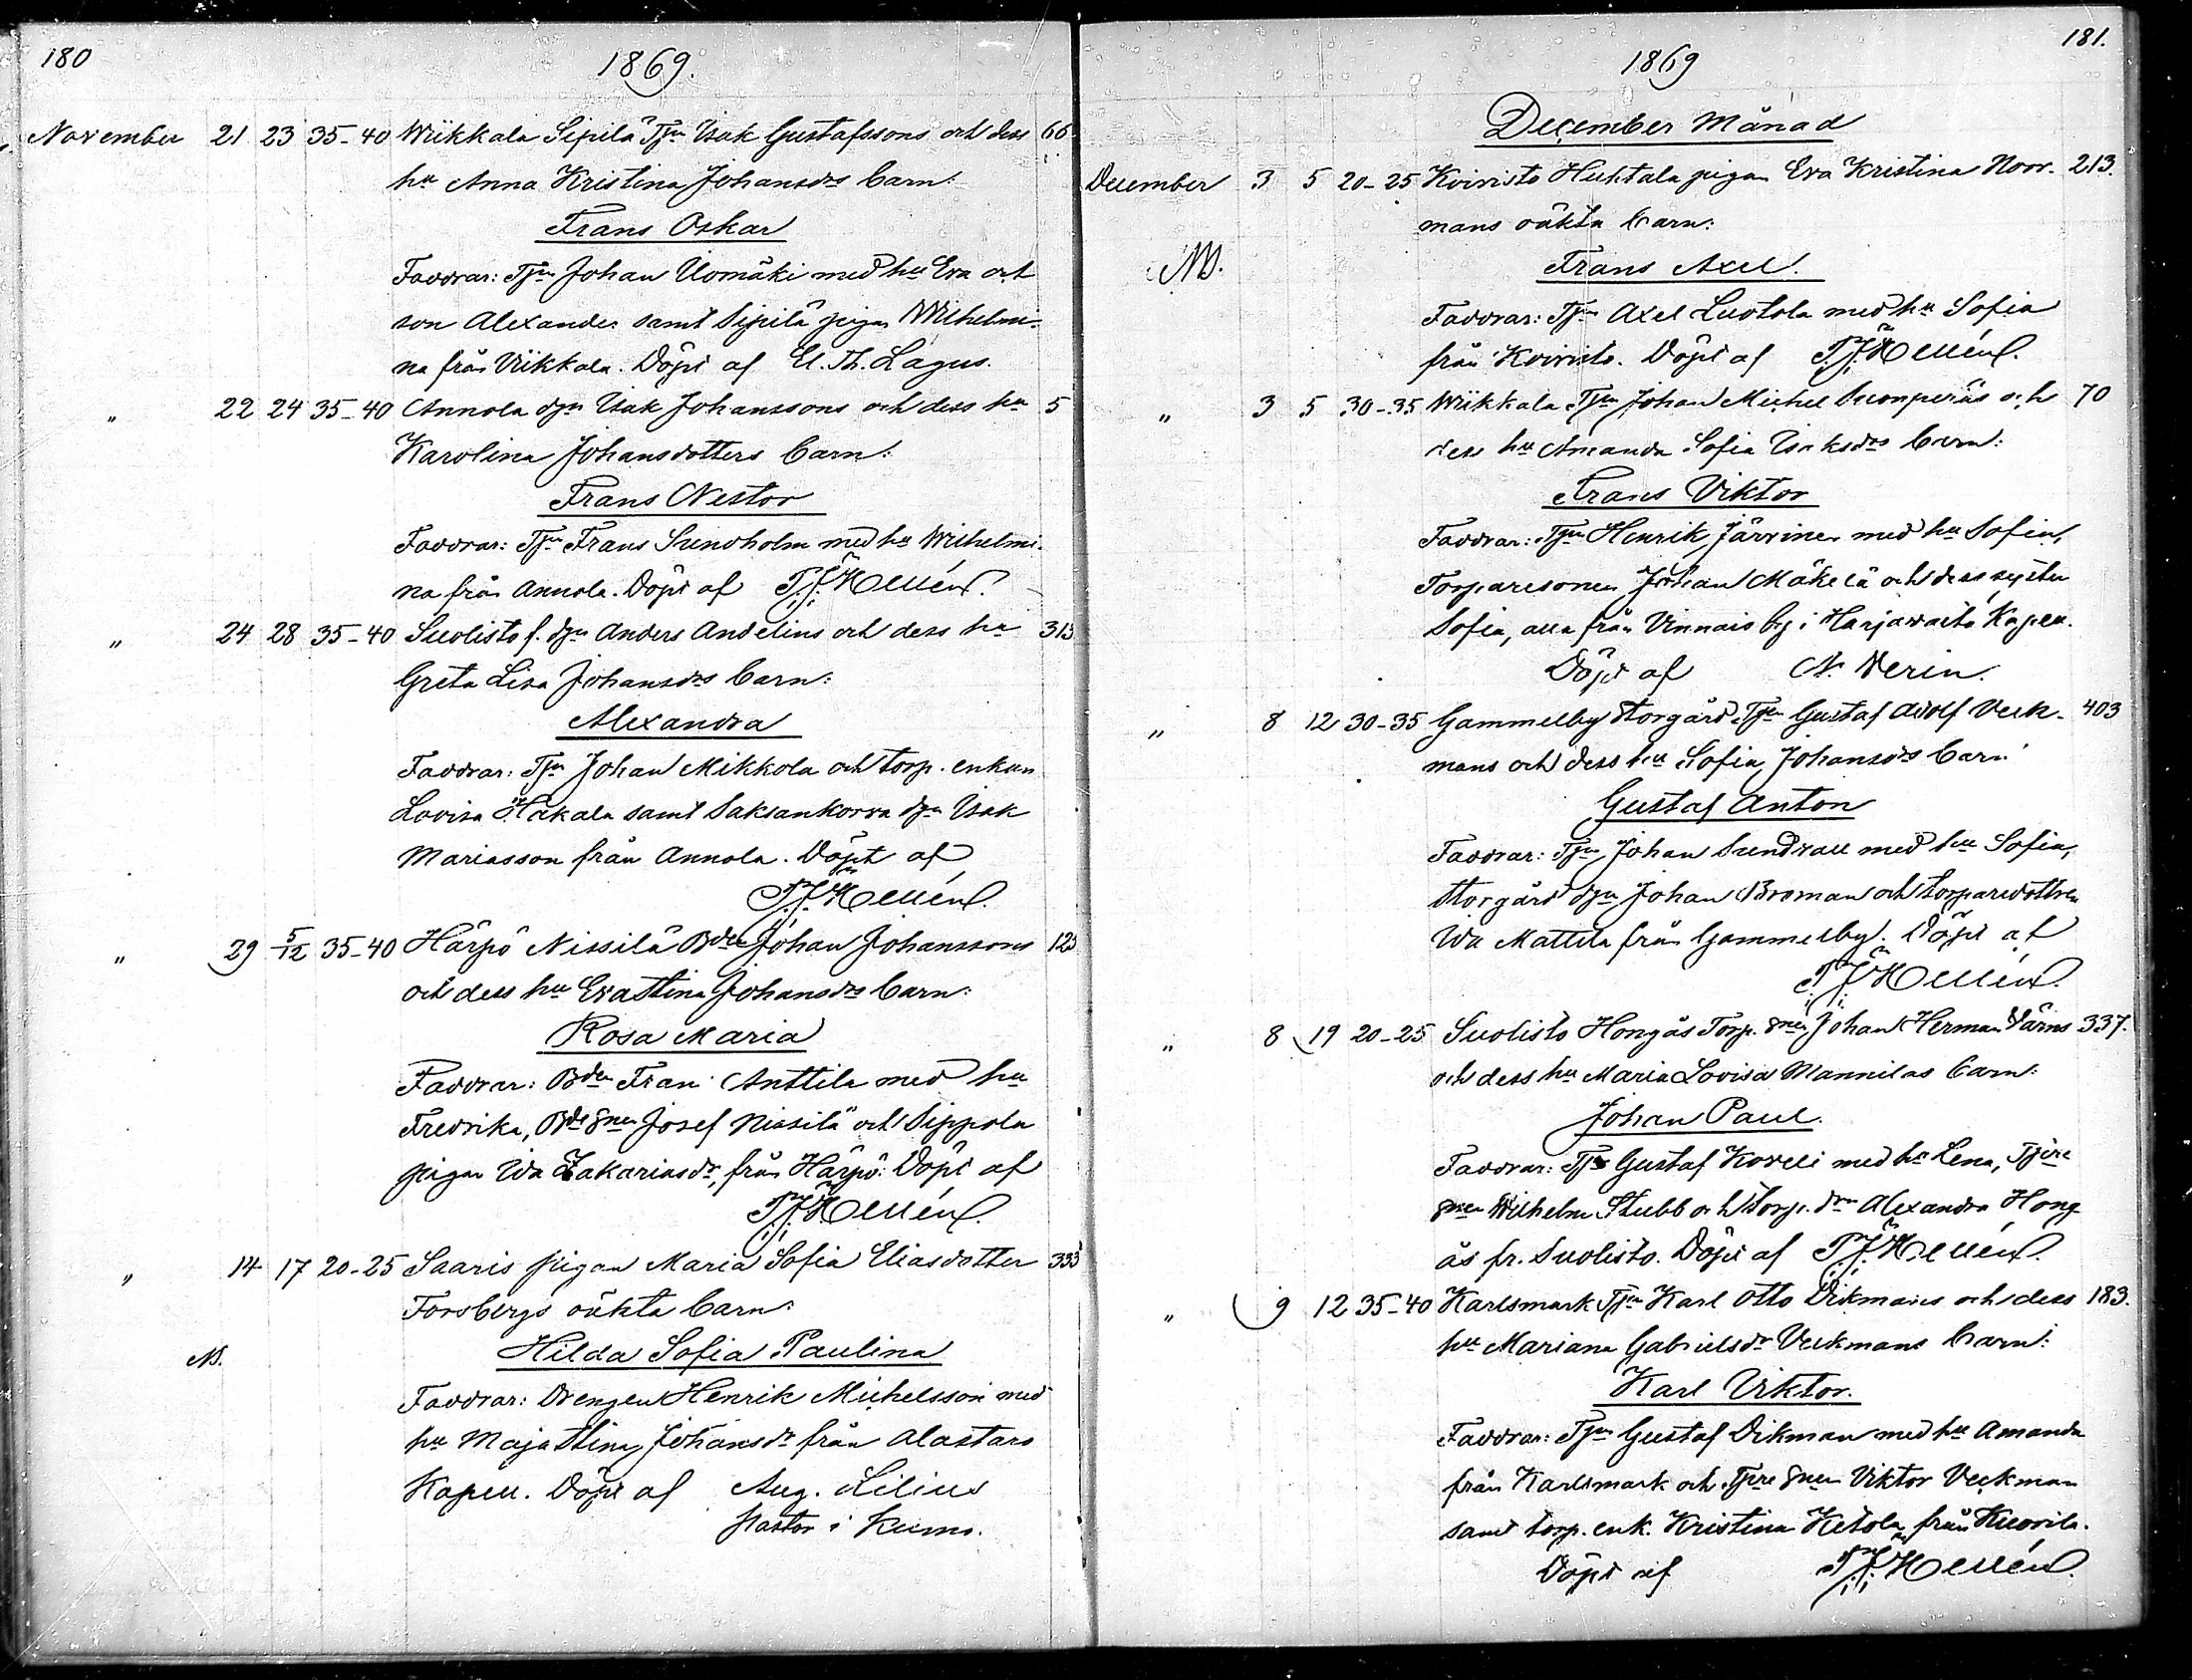 180
1869.
November 21 23 35-40 Wiikkala Sipilä Tjn Isak Gustafssons och dess 66
hu Anna Kristina Johansdrs barn:
Frans Oskar
Faddrar: Tjn Johan Uomäki med hu Eva och
son Alexander samt Sipilä pigan Wilhelmi-
na från Viikkala. Döpt af El. Th. Lagus.
" 22 24 35-40 Annola dgn Isak Johanssons och dess hu 5
Karolina Johansdotters barn:
Frans Nestor
Faddrar: Tjn Frans Sundholm med hu Wilhelmi-
na från Annola. Döpt af Hellén.
" 24 28 35-40 Suolisto f. dgn Anders Andelins och dess hu 313
Greta Lisa Johansdrs barn:
Alexandra
Faddrar: Tjn Johan Mikkola och torp. enkan
Lovisa Hakala samt Saksankorva dgn Isak
Mariasson från Annola. Döpt af
Hellén.
" 29 5/12 35-40 Härpö Nissilä Bden Johan Johanssons 123
och dess hu Eva Stina Johansdrs barn:
Rosa Maria
Faddrar: Bden Frans Anttila med hu
Fredrika, Bde snen Josef Nissilä och Sippola
pigan Ida Zakariasdr, från Härpö. Döpt af
Hellén.
" 14 17 20-25 Saaris pigan Maria Sofia Eliasdotter 333
Forsbergs oäkta barn:
NB. Hilda Sofia Paulina
Faddrar: Drengen Henrik Michelsson med
hu Maja Stina Johansdr från Alastaro
Kapell. Döpt af Aug. Lilius
pastor i Kumo.
181.
1869
December Månad
December 3 5 20-25 Koivisto Huhtala pigan Eva Kristina Norr- 213.
mans oäkta barn:
NB. Frans Axel.
Faddrar: Tjn Axel Luotola med hu Sofia
från Koivisto. Döpt af Hellén.
" 3 5 30-35 Wiikkala Tjn Johan Michel Suonperäs och 70
dess hu Amanda Sofia Isaksdrs barn:
Frans Viktor
Faddrar: Tjn Henrik Järvinen med hu Sofia,
Torparesonen Johan Mäkelä och dess syster
Sofia, alla från Vinnais by i Harjavalta Kapell.
Döpt af N. Verin.
" 8 12 30-35 Gammelby Storgård Tjn Gustaf Adolf Veck- 403
mans och dess hu Sofia Johansdrs barn:
Gustaf Anton
Faddrar: Tjn Johan Sundvall med hu Sofia,
Storgård dgn Johan Broman och torparedottren
Ida Mattila från Gammelby. Döpt af
Hellén.
" 8 19 20-25 Suolisto Hongås Torp. snen Johan Herman Värns 337.
och dess hu Maria Lovisa Mannilas barn:
Johan Paul.
Faddrar: Tjn Gustaf Koveli med hu Lena, Tjere
snen Wilhelm Stubb och Torp. drn Alexandra Hong-
ås fr. Suolisto. Döpt af Hellén.
" 9 12 35-40 Karlsmark Tjn Karl Otto Dikmans och dess 183.
hu Mariana Gabrielsdr Veckmans barn:
Karl Viktor.
Faddrar: Tjn Gustaf Dikman med hu Amanda
från Karlsmark och Tjere snen Viktor Veckman
samt torp. enk. Kristina Ketola från Kuorila.
Döpt af Hellén.